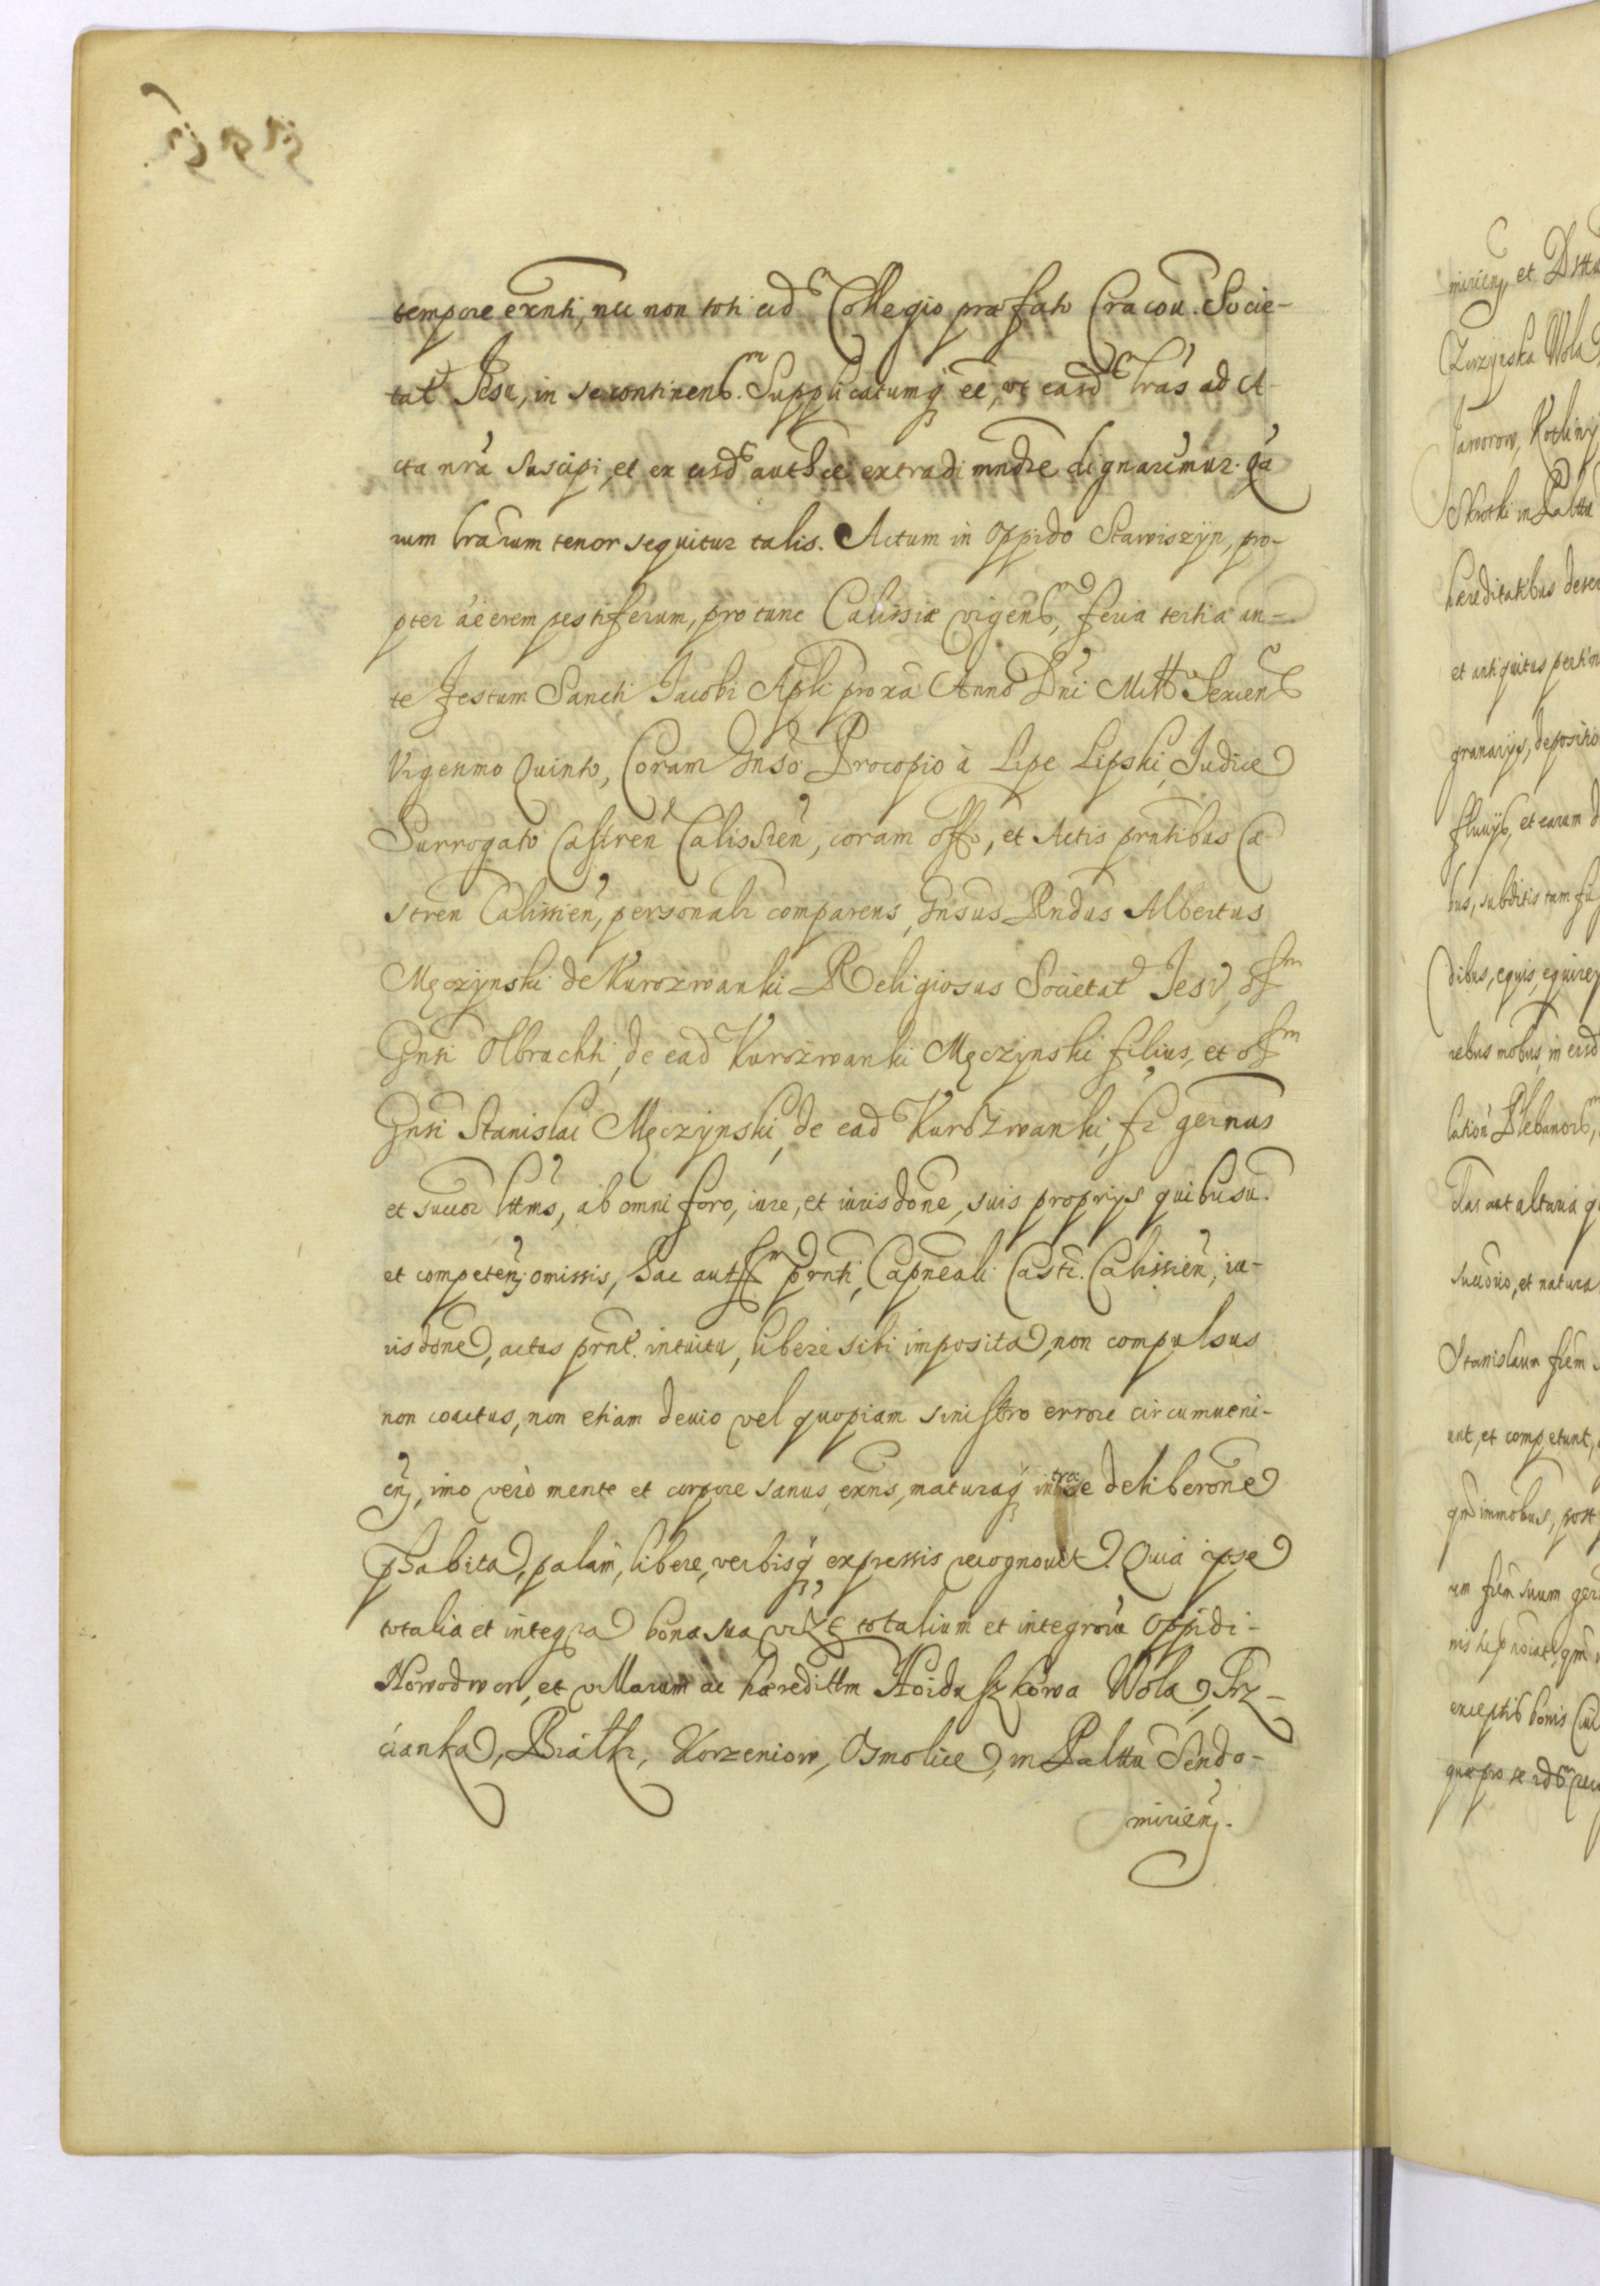 tempore exnti, nec non toti eid Collegio præfato Cracou. Socie-
tat Jesu, in se continen. Supplicatumq ee, vt easd lras ad A-
cta nra suscipi, et ex eisd authce extradi mndre dignaremur. Qua
rum lrarum tenor sequitur talis. Actum in Oppido Stawiszyn, pro-
pter aëerem pestiferum, pro tunc Calissiæ vigen, feria tertia an-
te festum Sancti Jacobi Apli proxa Anno Dni Mill Sexcen
Vigesimo Quinto, Coram Gnso Procopio à Lipe Lipski, Judice
Surrogato Castren Calissien, coram offo, et Actis prntibus Ca-
stren Calissien, personalr comparens, Gnsus Rndus Albertus
Męczynski de Kurozwanki Religiosus Societat Jesu, of
Gnsi Olbrachti, de ead Kurozwanki Męczynski filius, et of
Gnsi Stanislai Męczynski, de ead Kurozwanki, fr germus
et succor lttms, ab omni foro, iure, et iurisdone, suis proprys quibusu.
et competen omissis, hac aut prnti, Capneali Castr. Calissien, iu-
risdone, actus prnt. intuitu, libere sibi imposita, non compulsus
non coactus, non etiam deuio vel quopiam sinistro errore circumueni-
en, imo verò mente et corpore sanus exns, maturaq intra se deliberone
phabita, palam, libere, verbisq expressis recognouit. Quia ipse
totalia et integra bona sua vizt totalium et integroru Oppidi-
Nowodwor, et villarum ac hæredittm Hoiduszkowa Wola, Trz-
cianka, Biatki, Korzeniow, Osmolice, in Palttu Sendo-
mirien.
mirien, et
Zurzynska Wola
Jaworow, Kotliny
Skrotki in Palttu
hæreditatibus
et antiquitus
granarys,
fluuys, et earum
bus, subditis tam
dibus, equis,
rebus mobus, in eisd
lation Plebanor
das aut altaria
et natura
Stanislaum frem
ent, et competunt,
qm immobus, post
um frem suum ger
exceptis bonis
quæ pro se